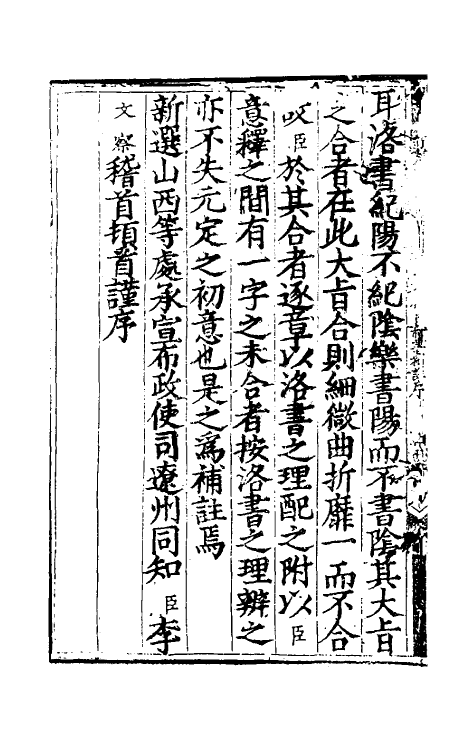 耳洛書紀陽不紀陰樂書陽而不書陰其大旨
之合者在此大旨合則細微曲折靡一而不合
哎臣於其合者逐章以洛書之理配之附以臣
意釋之間有一字之未合者按洛書之理辨之
亦不失元定之初意也是之爲補註焉
新選山西等處承宣布政使司遼州同知臣李
文察稽首頓首謹序